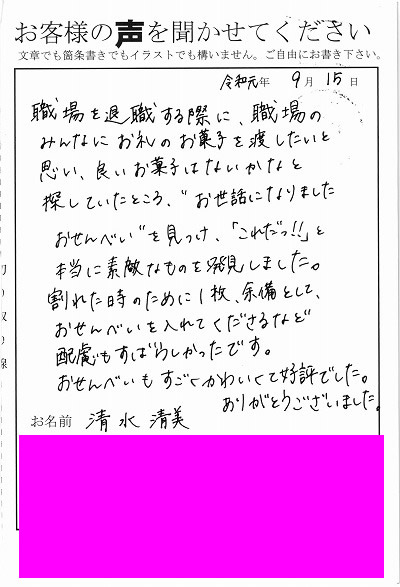 お客様の声を聞かせてください
文章でも箇条書きでもイラストでも構いません。ご自由にお書き下さい。
令和元年 9月 15日
職場を退職する際に、職場の
みんなにお礼のお菓子を渡したいと
思い、良いお菓子はないかなと
探していたところ、"お世話になりました
おせんべい"を見つけ、「これだっ!!」と
本当に素敵なものを発見しました。
割れた時のために1枚、余備として、
おせんべいを入れてくださるなど
配慮もすばらしかったです。
おせんべいもすごくかわいくて好評でした。
ありがとうございました。
お名前 清水 清美
切り取り線